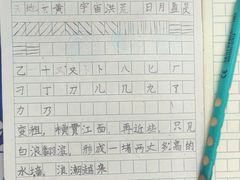 天地玄黄 宇宙洪荒 日月盈昃
乙 十 又 卜 八 匕 厂
刁 丁 刀 儿 几 九 了
力 乃
变粗，横贯江面，再近些，只见
白浪翻滚，形成一堵两丈多高的
水墙，浪潮越来